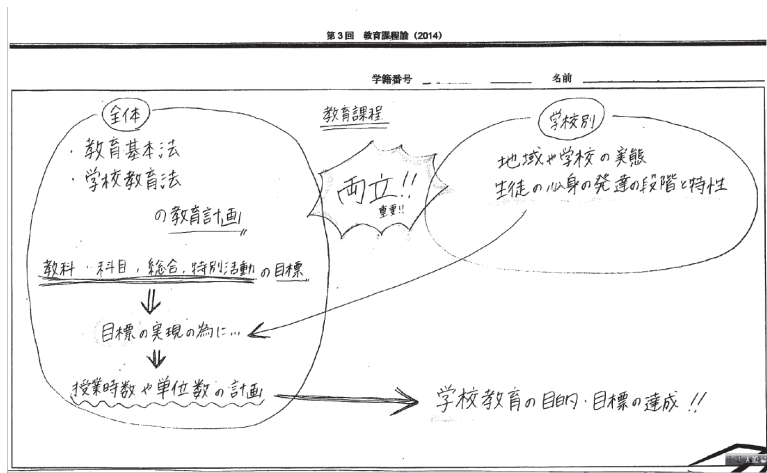 第3回 教育課程論（2014）
学籍番号 名前
全体
・教育基本法
・学校教育法
の教育計画
教科・科目，総合，特別活動の目標
目標の実現の為に…
授業時数や単位数の計画
教育課程
両立!!
重要!!
学校別
地域や学校の実態
生徒の心身の発達の段階と特性
学校教育の目的・目標の達成!!